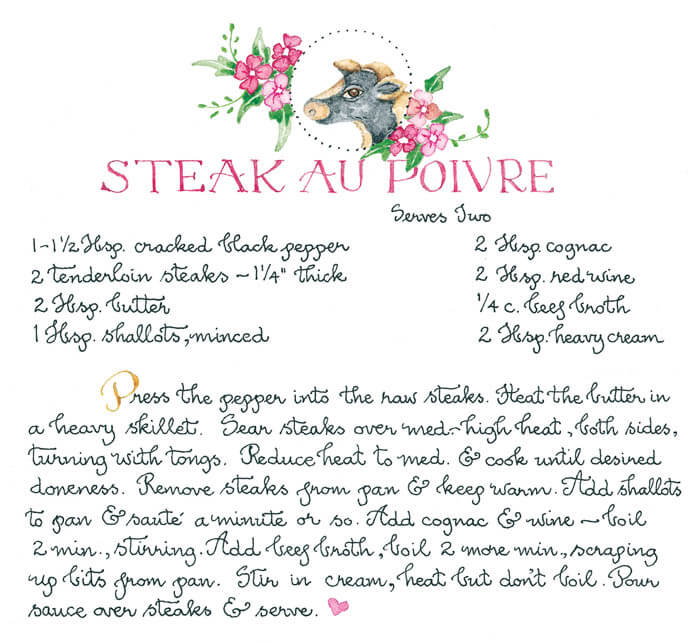 STEAK AU POIVRE
Serves Two
1-1½ Tbsp. cracked black pepper
2 tenderloin steaks ~ 1¼" thick
2 Tbsp. butter
1 Tbsp. shallots, minced
2 Tbsp. cognac
2 Tbsp. red wine
¼ c. beef broth
2 Tbsp. heavy cream
Press the pepper into the raw steaks. Heat the butter in
a heavy skillet. Sear steaks over med.-high heat, both sides,
turning with tongs. Reduce heat to med. & cook until desired
doneness. Remove steaks from pan & keep warm. Add shallots
to pan & sauté a minute or so. Add cognac & wine ~ boil
2 min., stirring. Add beef broth, boil 2 more min., scraping
up bits from pan. Stir in cream, heat but don't boil. Pour
sauce over steaks & serve.